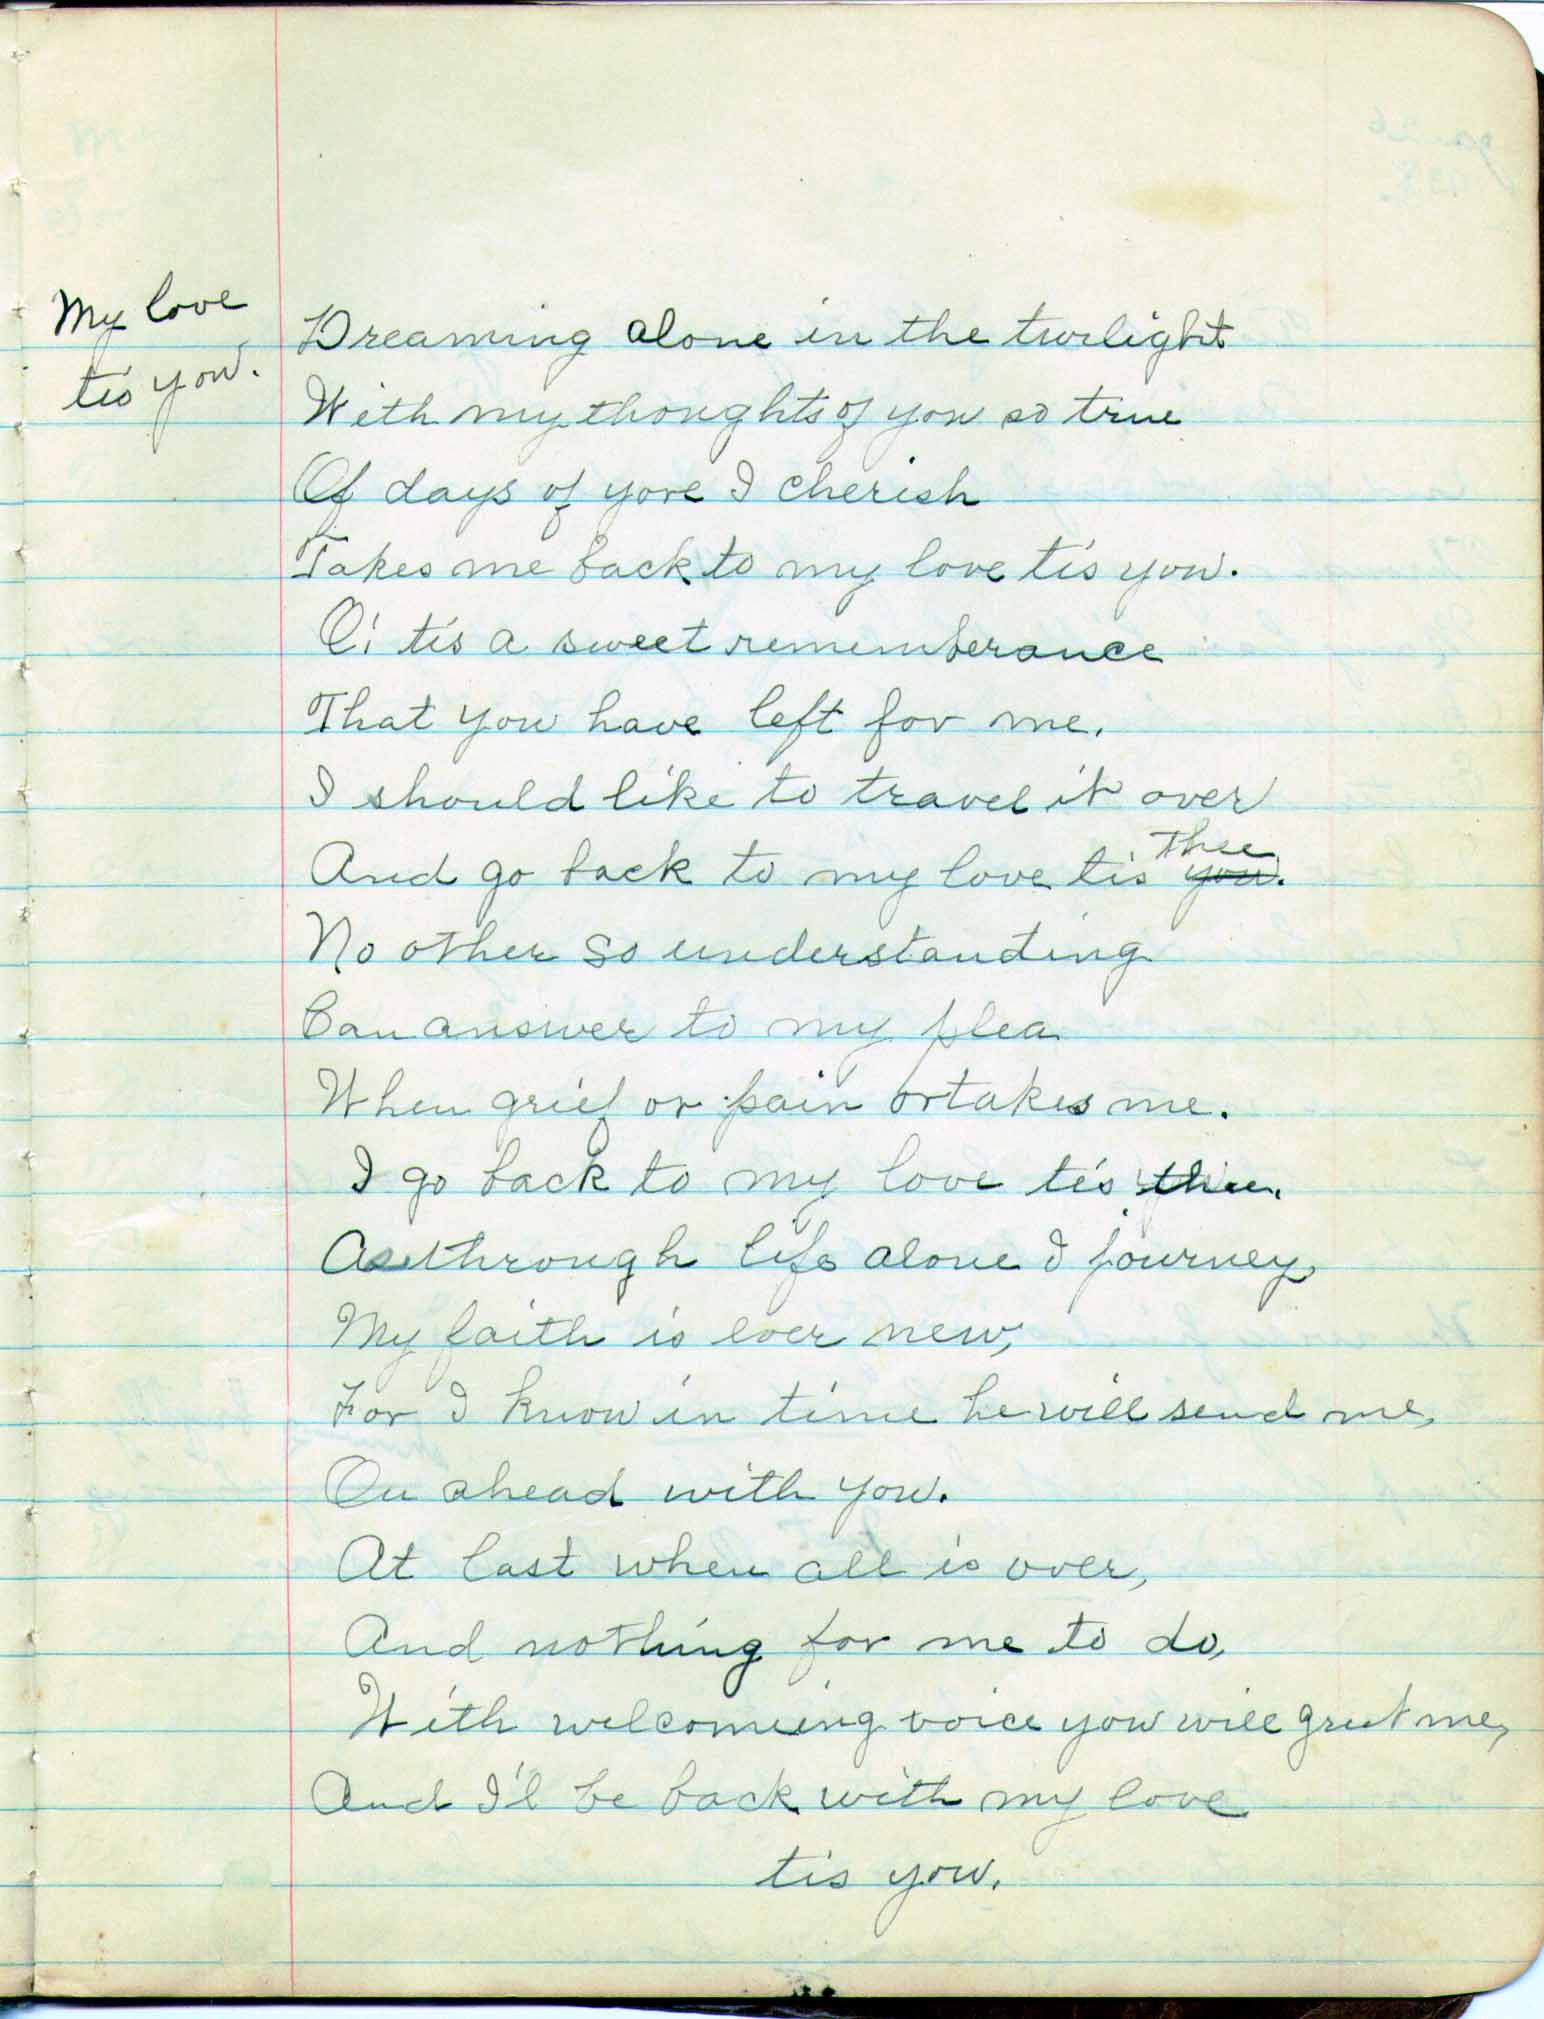 My love
tis you.
Dreaming alone in the twilight
With my thoughts of you so true
Of days of yore I cherish
Takes me back to my love tis you.
O! tis a sweet rememberance
That you have left for me.
I should like to travel it over
Thee
And go back to my love tis you.
No other so understanding
Can answer to my plea
When grief or pain ortakes me.
I go back to my love tis thee.
As through life alone I journey
My faith is ever new,
For I know in time he will send me,
On ahead with you.
At last when all is over,
And nothing for me to do,
With welcomeing voice you will greet me,
And I'l be back with my love
tis you.